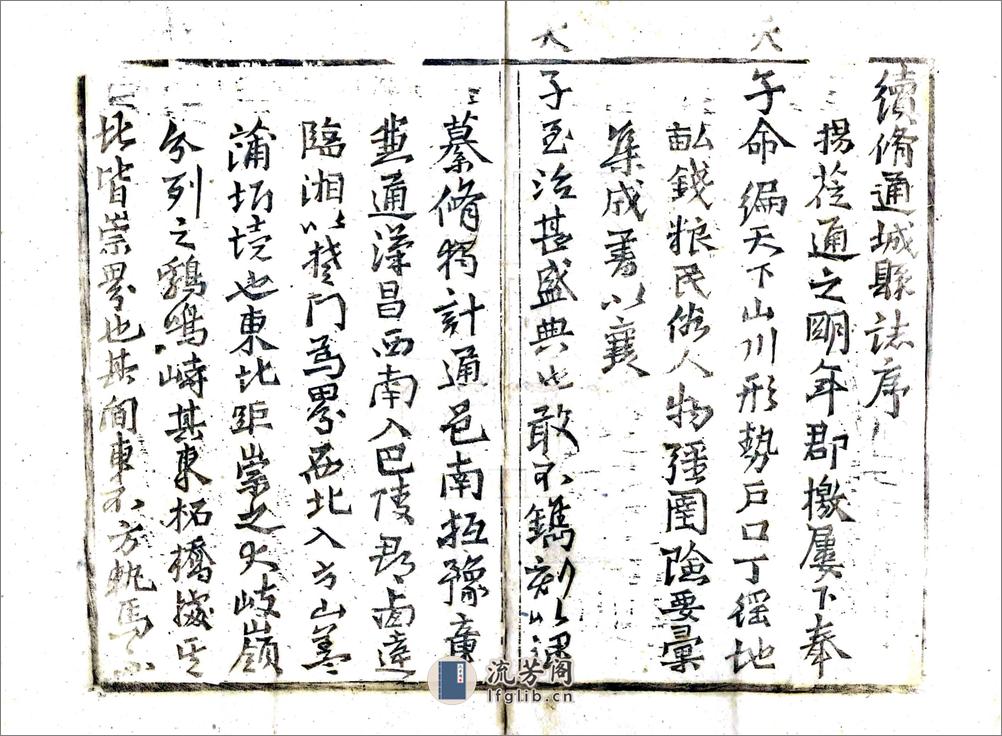 續脩通城縣誌序
揚莅通之明年郡檄屢下奉
天
子命編天下山川形勢戶口丁徭地
畝錢粮民俗人物疆圉險要彙
集成書以襄
天
子至治甚盛典也敢不鐫刻以
纂脩獨計通邑南抵豫章
並通漢昌西南入巴陵西達
臨湘以楚門為界西北入方山盖
蒲圻境也東北距崇之火岐嶺
分列之鷄鳴峙其東柘橋據其
北皆崇界也其間車不方軌馬不
流芳阁
lfglib.cn